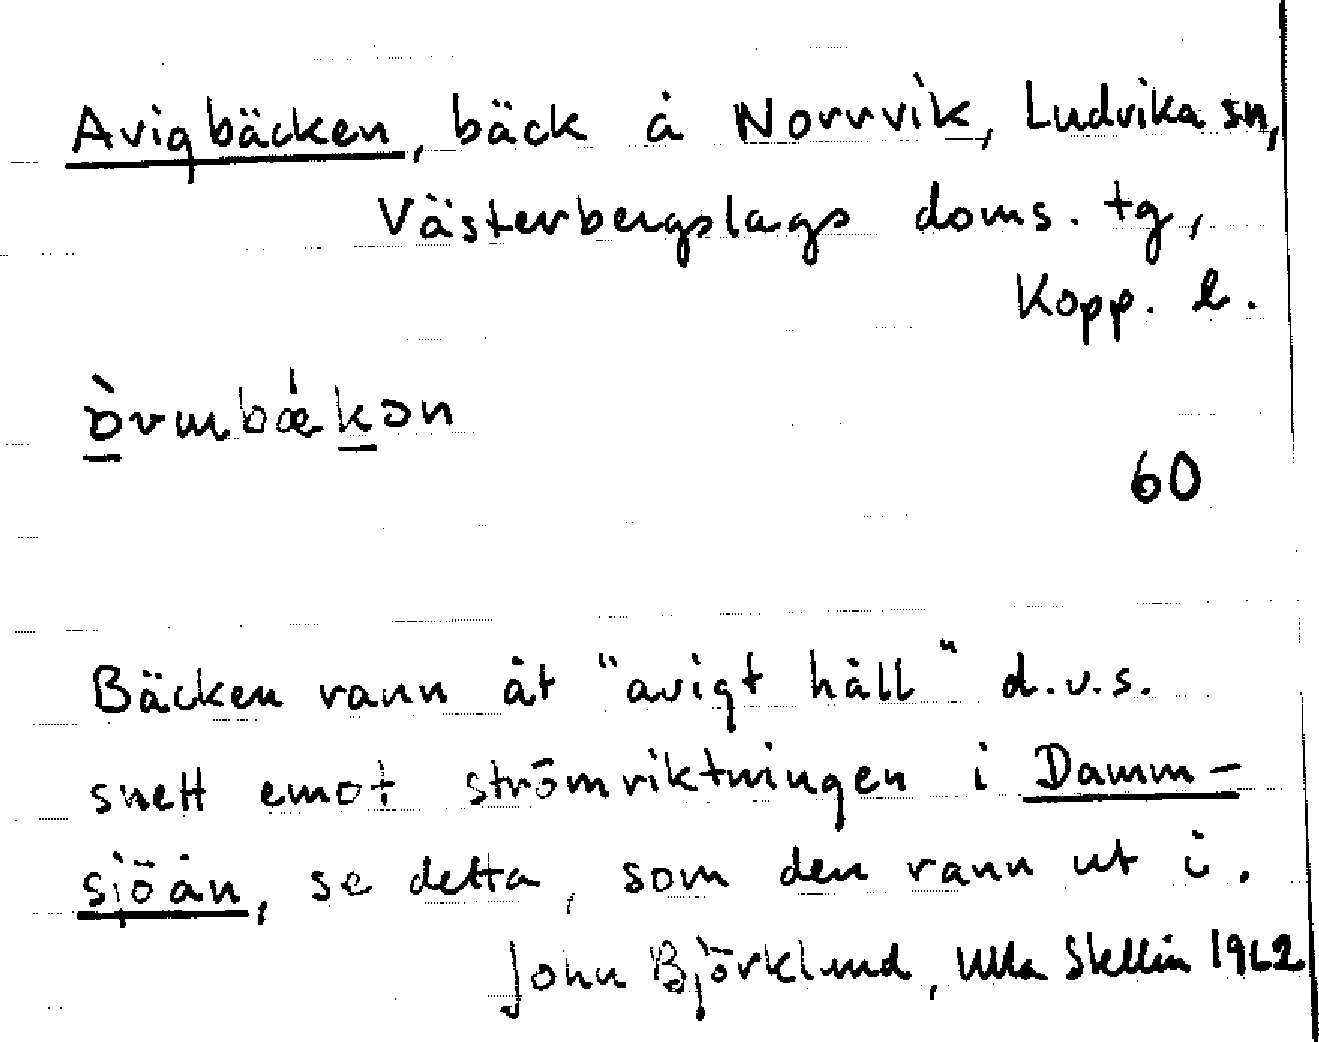 Avigbäcken, bäck å Norrvik, Ludvika sn,
Västerbergslags doms. tg,
Kopp. l.
60
Bäcken rann åt "avigt håll" d.v.s.
snett emot strömriktningen i Damm-
sjöån, se detta, som den rann ut i.
John Björklund, Ulla Stellin 1962